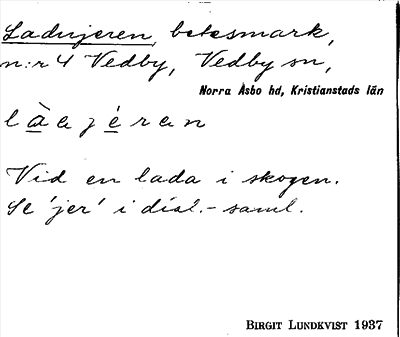 Ladujeren, betesmark,
n:r 4 Vedby, Vedby sn,
Norra Åsbo hd, Kristianstads län
l à a j é r a n
Vid en lada i skogen.
Se 'jer' i dial.-saml.
BIRGIT LUNDKVIST 1937